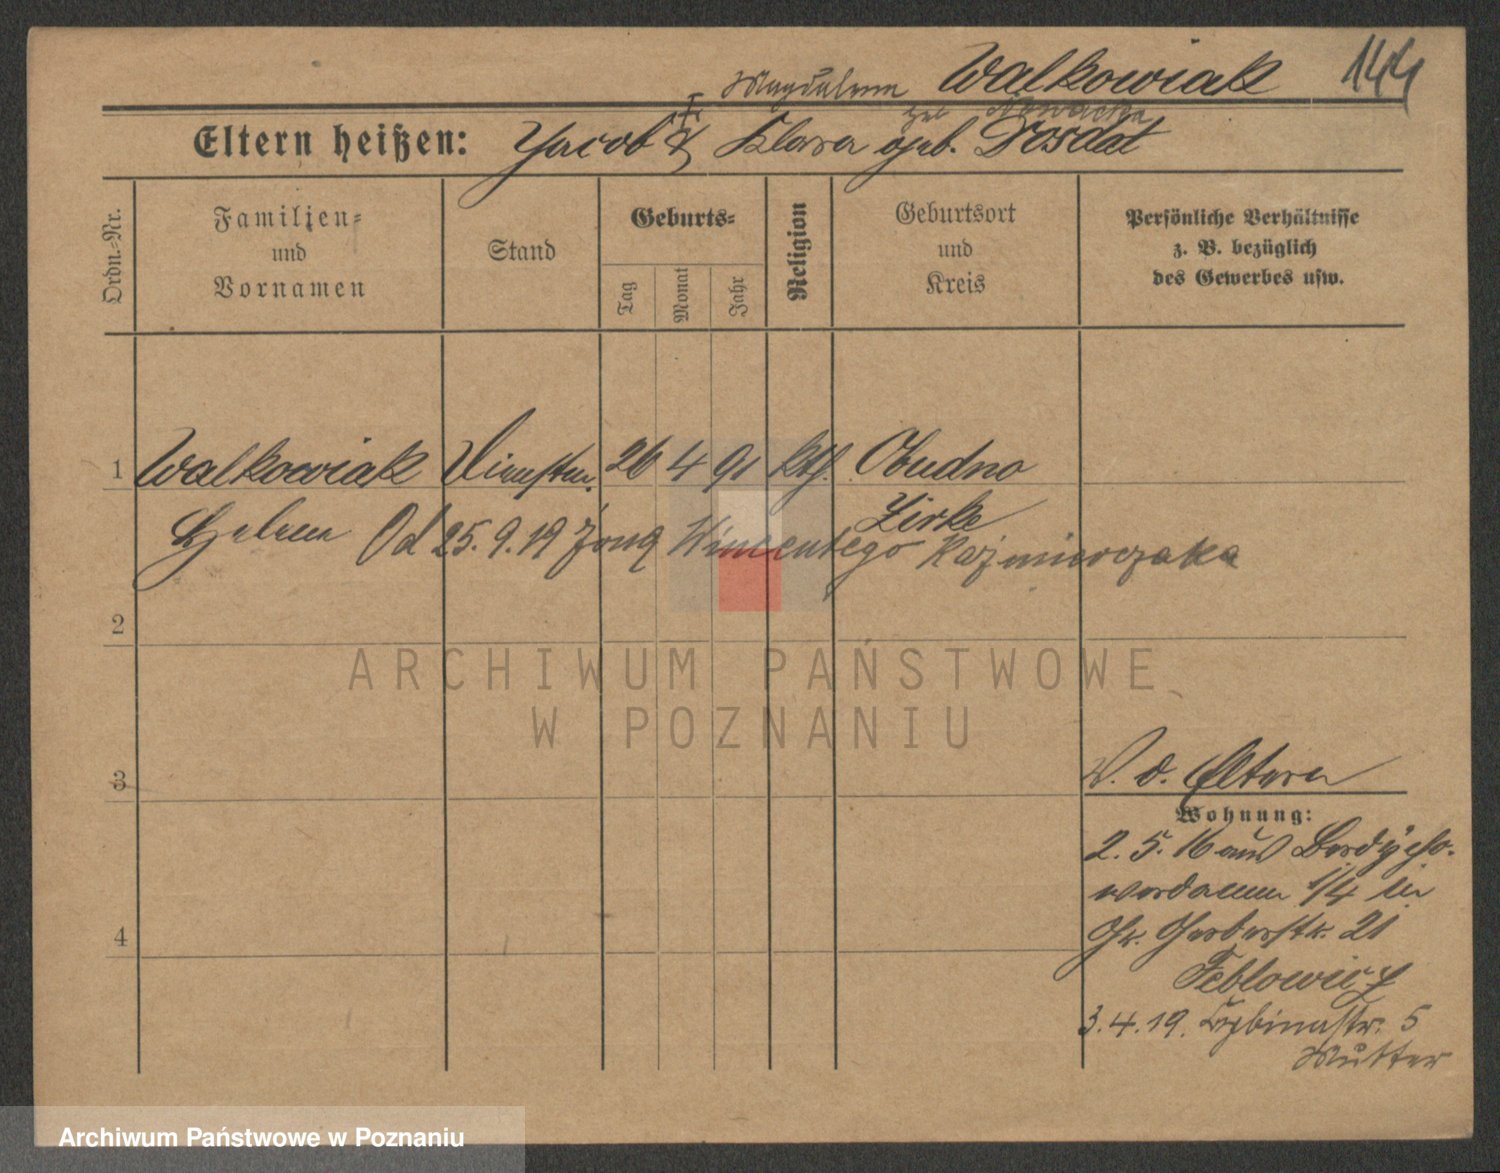 Magdalena Walkowiak 144
geb. Nowacka
Eltern heißen: Jacob & Klara geb. Drosdat
Ordn.-Nr.
Familien-
und
Vornamen
Stand
Geburts-
Tag
Monat
Jahr
Religion
Geburtsort
und
Kreis
Persönliche Verhältnisse
z. B. bezüglich
des Gewerbes usw.
1 Walkowiak Dienstm. 26 4 91 kth. Obudno
Zirke
Helena Od 25.9.19 żoną Wincentego Kaźmierczaka
2
ARCHIWUM PAŃSTWOWE
W POZNANIU
3
W. d. Eltern
Wohnung:
2. 5. 16 aus Bordycho-
wordamm 1/4 in
4
Gr. Gerberstr. 21
Feblowicz
3. 4. 19. 5
Mutter
Archiwum Państwowe w Poznaniu